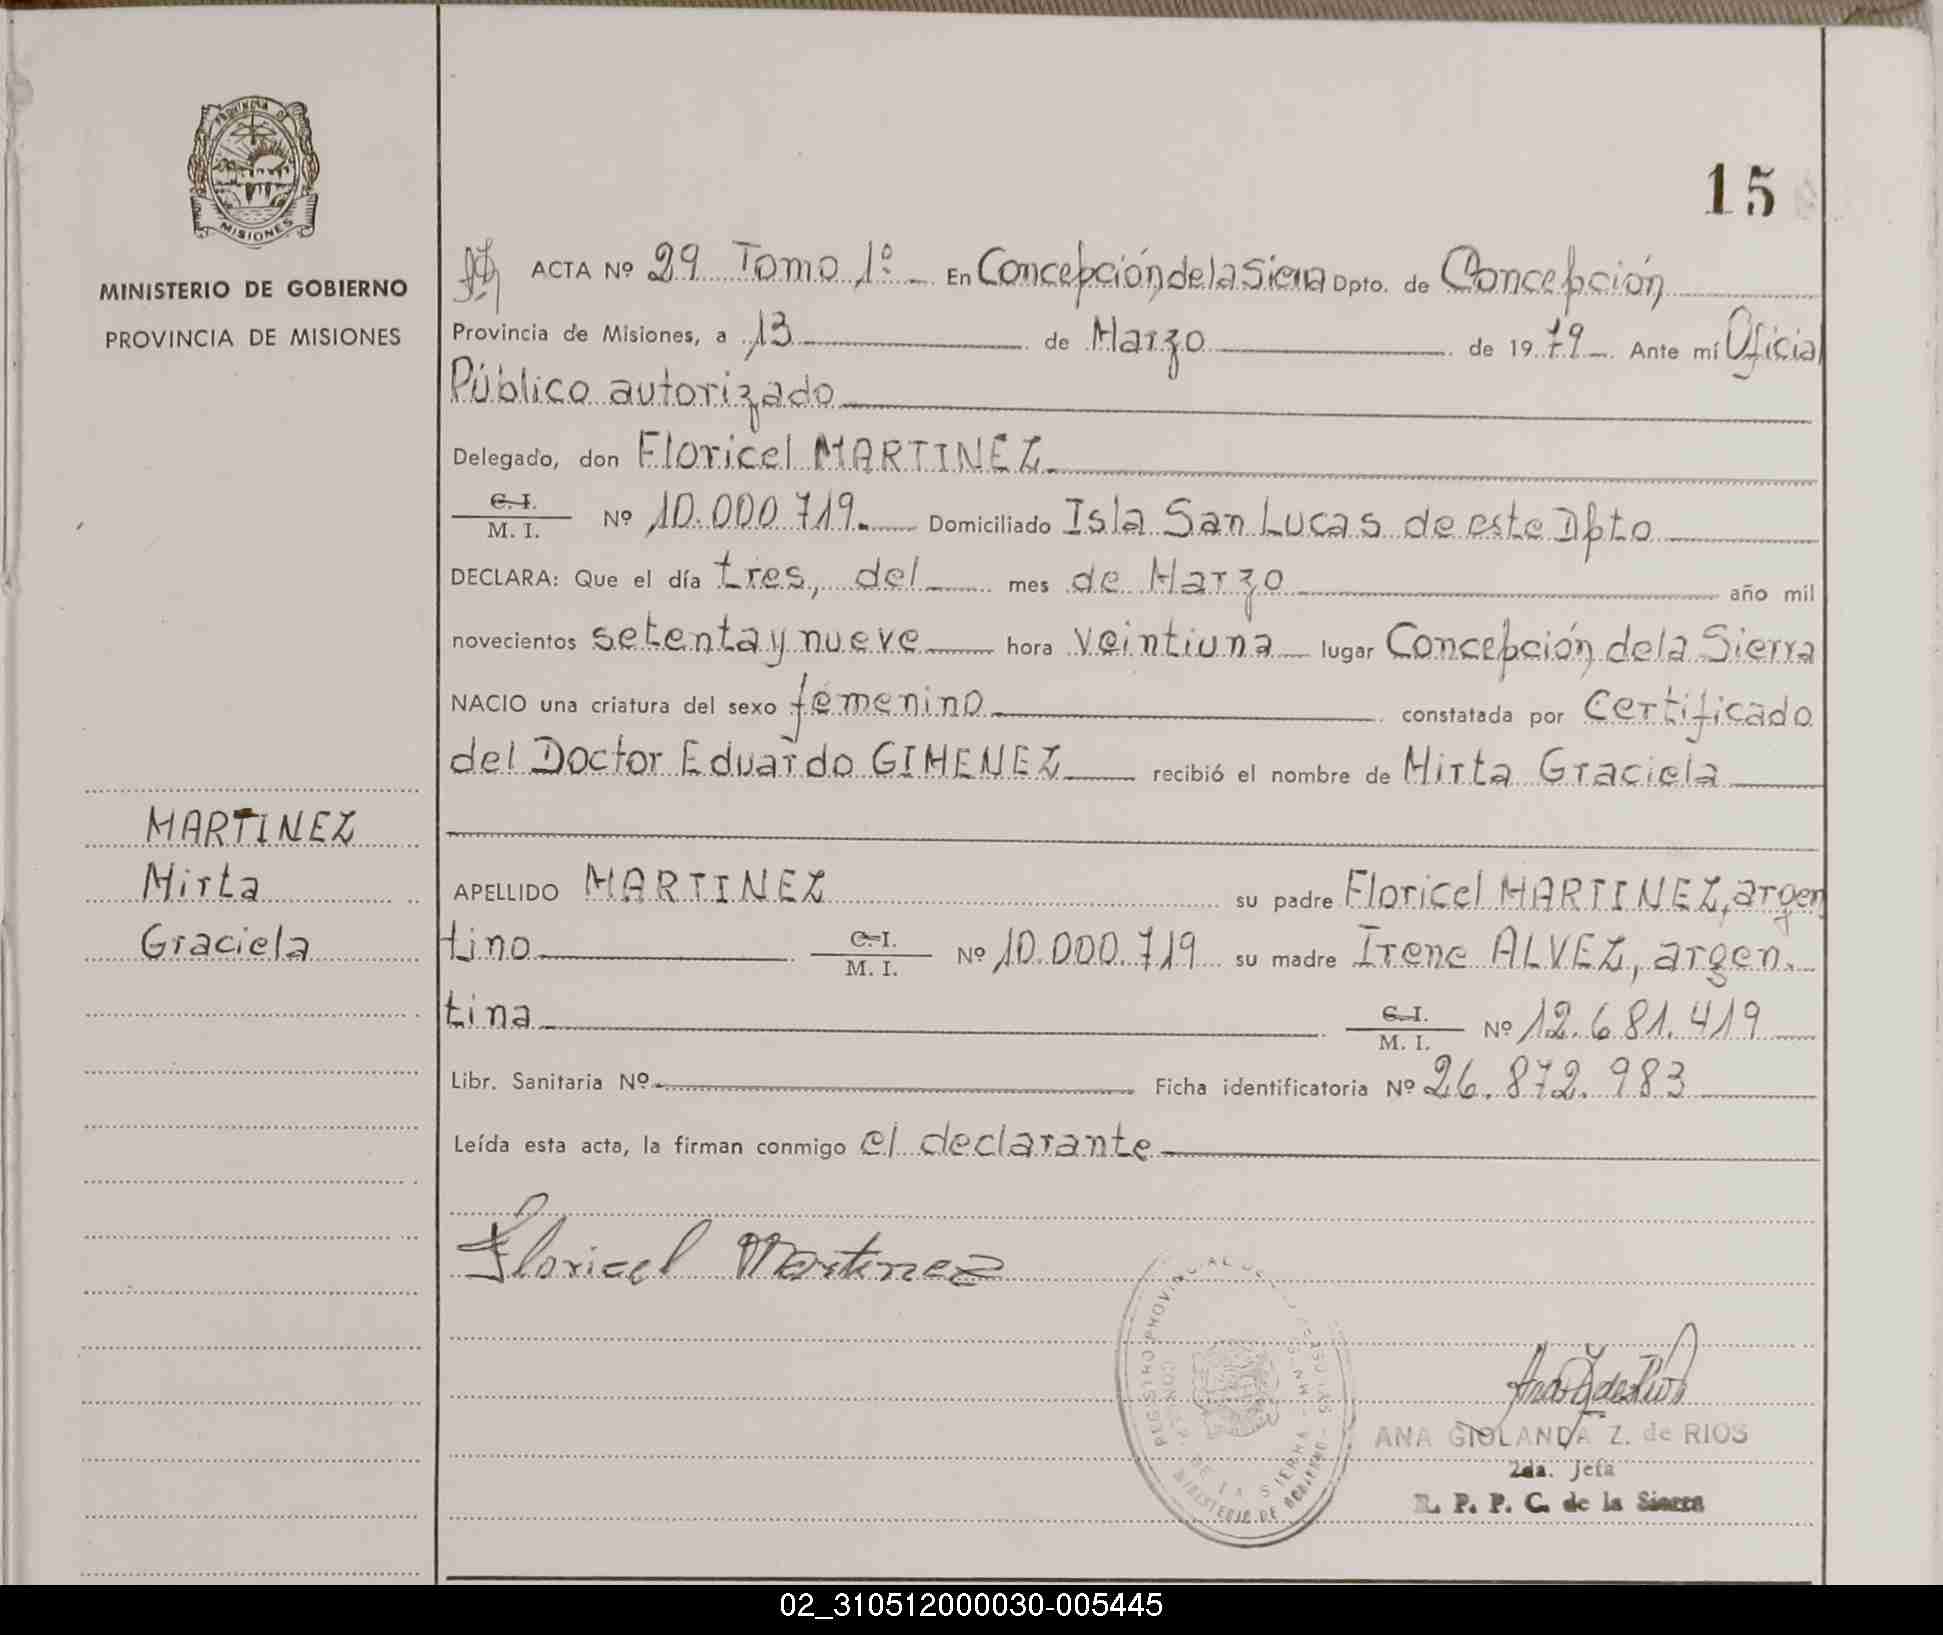 PROVINCIA DE
MISIONES
MINISTERIO DE GOBIERNO
PROVINCIA DE MISIONES
15
ACTA Nº 29 Tomo 1º En Concepción de la Sierra Dpto. de Concepción
Provincia de Misiones, a 13 de Marzo de 1979 Ante mí Oficial
Público autorizado
Delegado, don Floricel MARTINEZ
C. I.
M. I. Nº 10.000.719. Domiciliado Isla San Lucas de este Dpto
DECLARA: Que el día tres, del mes de Marzo año mil
novecientos setenta y nueve hora veintiuna lugar Concepción de la Sierra
NACIO una criatura del sexo femenino constatada por Certificado
del Doctor Eduardo GIMENEZ recibió el nombre de Mirta Graciela
MARTINEZ
Mirta
Graciela
APELLIDO MARTINEZ su padre Floricel MARTINEZ, argen
tino C. I. M. I. Nº 10.000.719 su madre Irene ALVEZ, argen.
tina C. I. M. I. Nº 12.681.419
Libr. Sanitaria Nº Ficha identificatoria Nº 26.872.983
Leída esta acta, la firman conmigo el declarante
Floricel Martinez
REGISTRO PROVINCIAL DE
DE LA SIERRA
MINISTERIO DE GOBIERNO
ANA GIOLANDA Z. de RIOS
2da. Jefa
R. P. P. C. de la Sierra
02_310512000030-005445